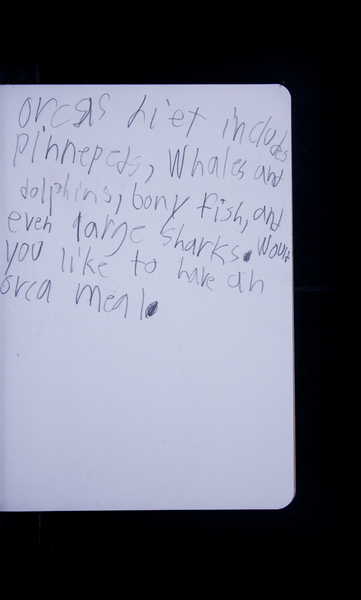 orcas diet includes
pinnepeds, whales and
dolphins, bony fish, and
even large sharks. Would
you like to have an
orca meal.